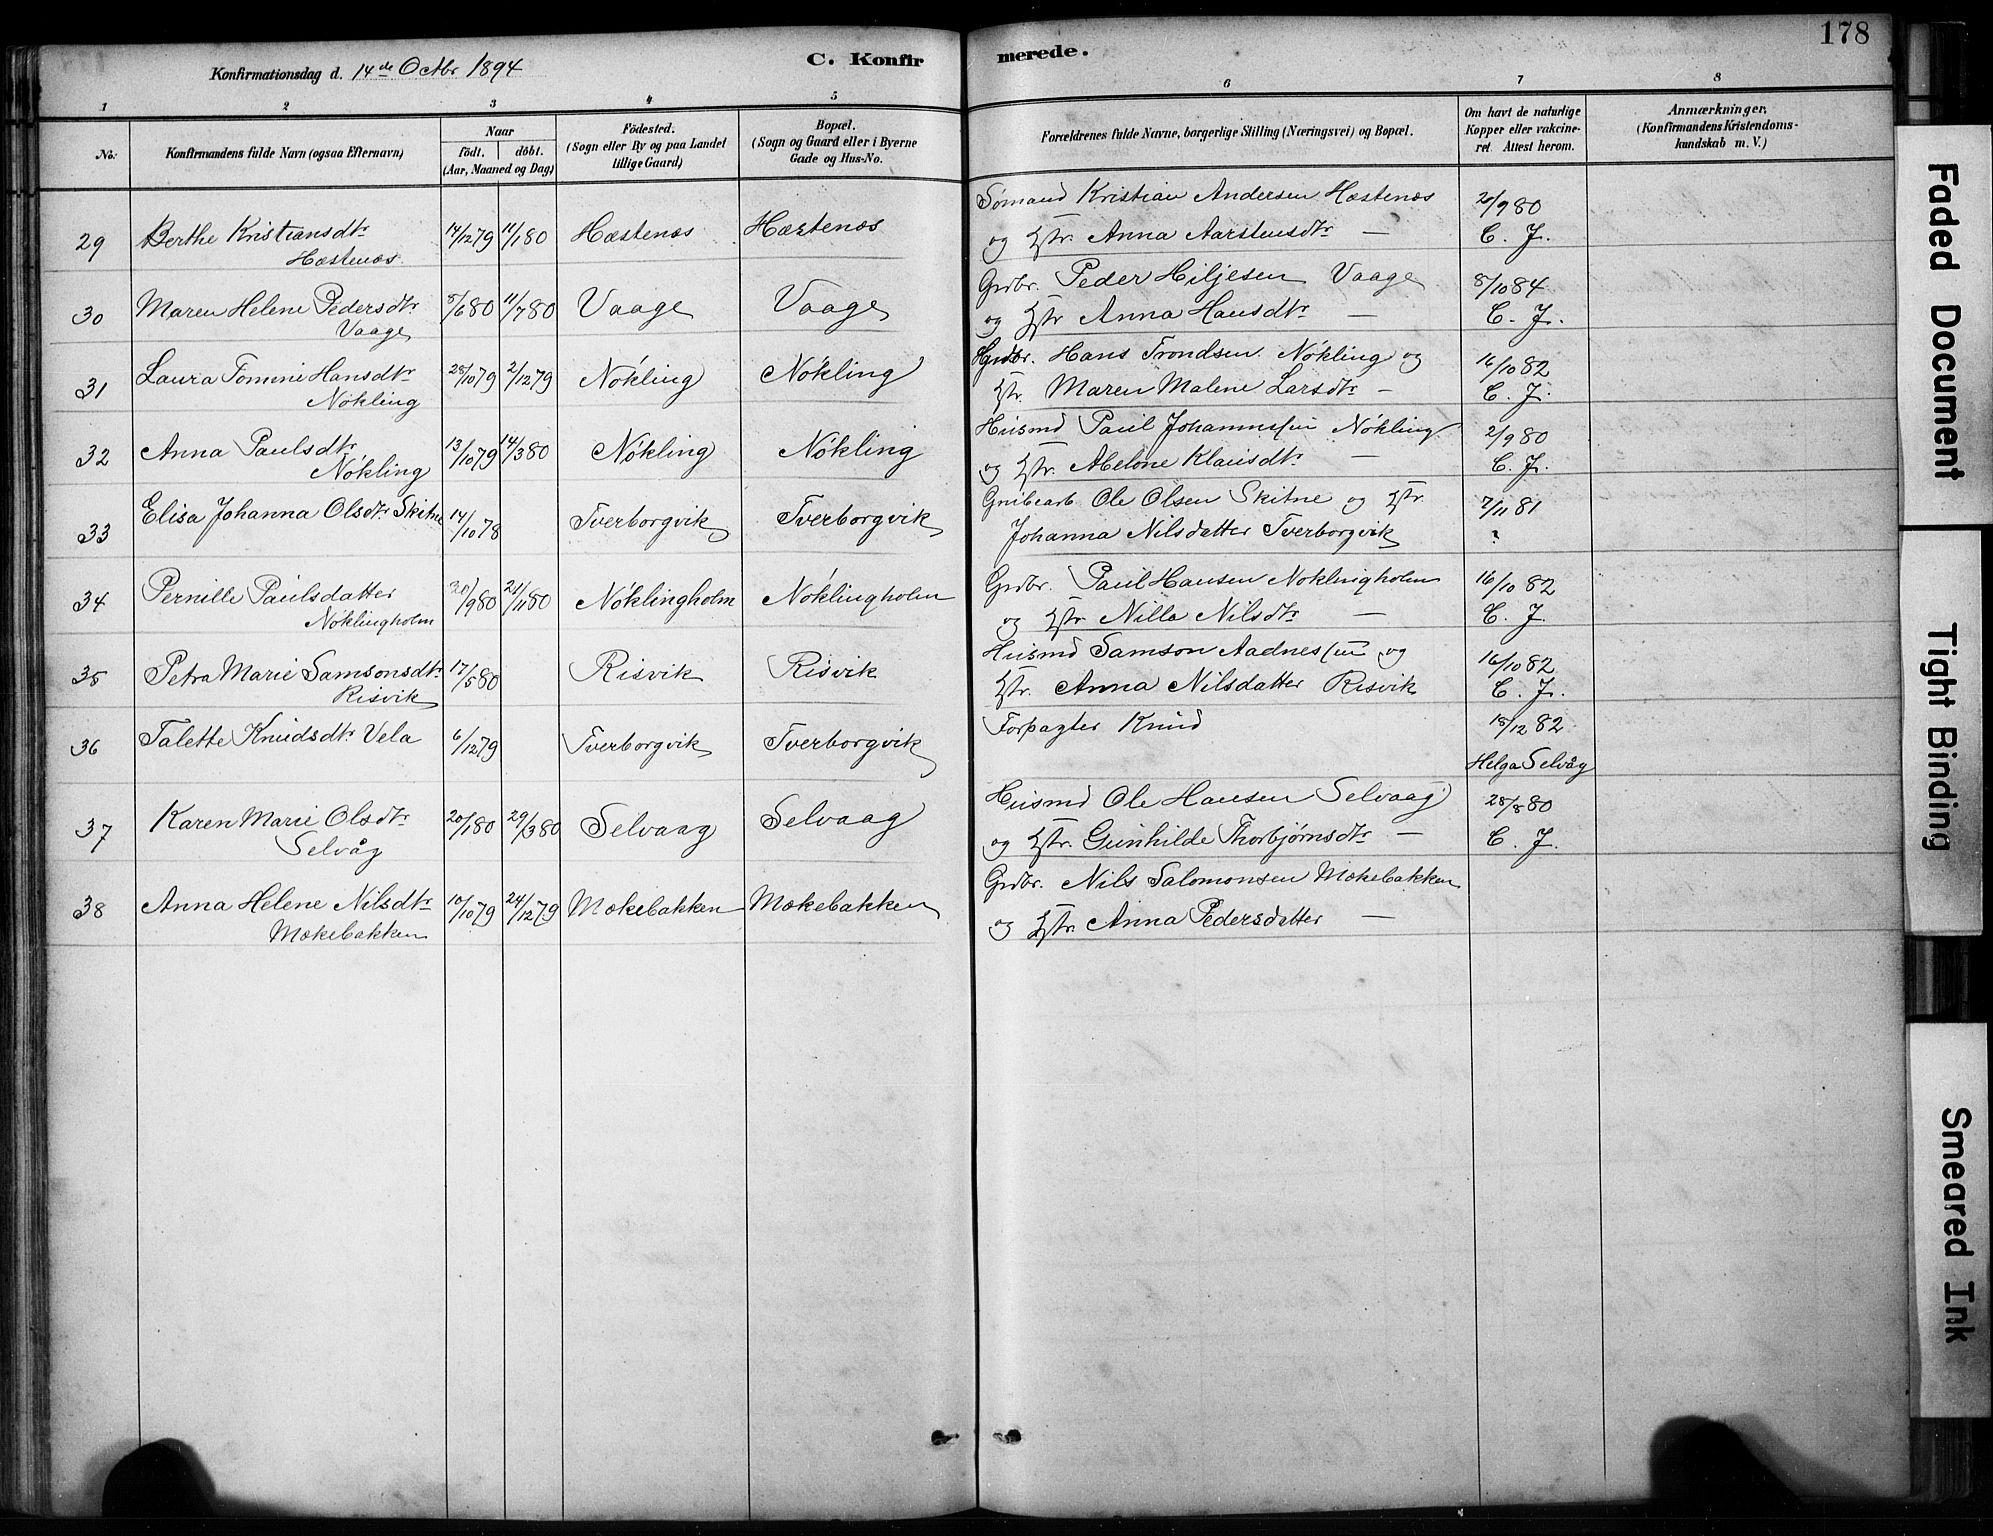 178
Konfirmationsdag d. 14de Octbr 1894
C. Konfirmerede.
1 2 3 4 5 6 7 8
No.
Konfirmandens fulde Navn (ogsaa Efternavn)
Naar
födt. döbt.
(Aar, Maaned og Dag)
Födested.
(Sogn eller By og paa Landet
tillige Gaard)
Bopæl.
(Sogn og Gaard eller i Byerne
Gade og Hus-No.
Forældrenes fulde Navne, borgerlige Stilling (Næringsvei) og Bopæl.
Om havt de naturlige
Kopper eller vakcine-
ret. Attest herom.
Anmærkninger.
(Konfirmandens Kristendoms-
kundskab m. V.)
29 Berthe Kristiansdtr 14/12 79 11/1 80 Hæstenæs Hæstenæs Sømand Kristian Andersen Hæstenæs 20/9 80
Hæstenæs og Hstr. Anna Aarstensdtr — C. J.
30 Maren Helene Pedersdtr 8/6 80 11/7 80 Vaage Vaage Grdbr. Peder Hiljesen Vaage 8/10 84
Vaage og Hstr Anna Hansdtr — C. J.
31 Laura Tomine Hansdtr 28/10 79 2/12 79 Nökling Nökling Grdbr. Hans Trondsen Nökling og 16/10 82
Nökling Hstr. Maren Malene Larsdtr — C. J.
32 Anna Paulsdtr 13/10 79 14/3 80 Nökling Nökling Husmd Paul Johannessen Nökling 2/9 80
Nökling og Hstr. Abelone Klausdtr — C. J.
33 Elisa Johanna Olsdtr Skitne 14/10 78 Tverborgvik Tverborgvik Grubearb Ole Olsen Skitne og Hstr. 7/11 81
Johanna Nilsdatter Tverborgvik ?
34 Pernille Paulsdatter 30/9 80 21/11 80 Nöklingholm Nöklingholm Grdbr. Paul Hansen Nöklingholm 16/10 82
Nöklingholm og Hstr Nilla Nilsdtr — C. J.
35 Petra Marie Samsonsdtr 17/5 80 Risvik Risvik Husmd Samson Aadnessen og 16/10 82
Risvik Hstr. Anna Nilsdatter Risvik C. J.
36 Talette Knudsdtr Vela 6/12 79 Tverborgvik Tverborgvik Forpagter Knud 18/12 82
Helga Selvåg
37 Karen Marie Olsdtr 20/1 80 29/3 80 Selvaag Selvaag Husmd Ole Hansen Selvaag 28/8 80
Selvåg og Hstr. Gunhilde Thorbjørnsdtr — C. J.
38 Anna Helene Nilsdtr 10/10 79 24/12 79 Mækebakken Mækebakken Grdbr. Nils Salomonsen Mækebakken
Mækebakken og Hstr. Anna Pedersdatter —
Faded Document
Tight Binding
Smeared Ink